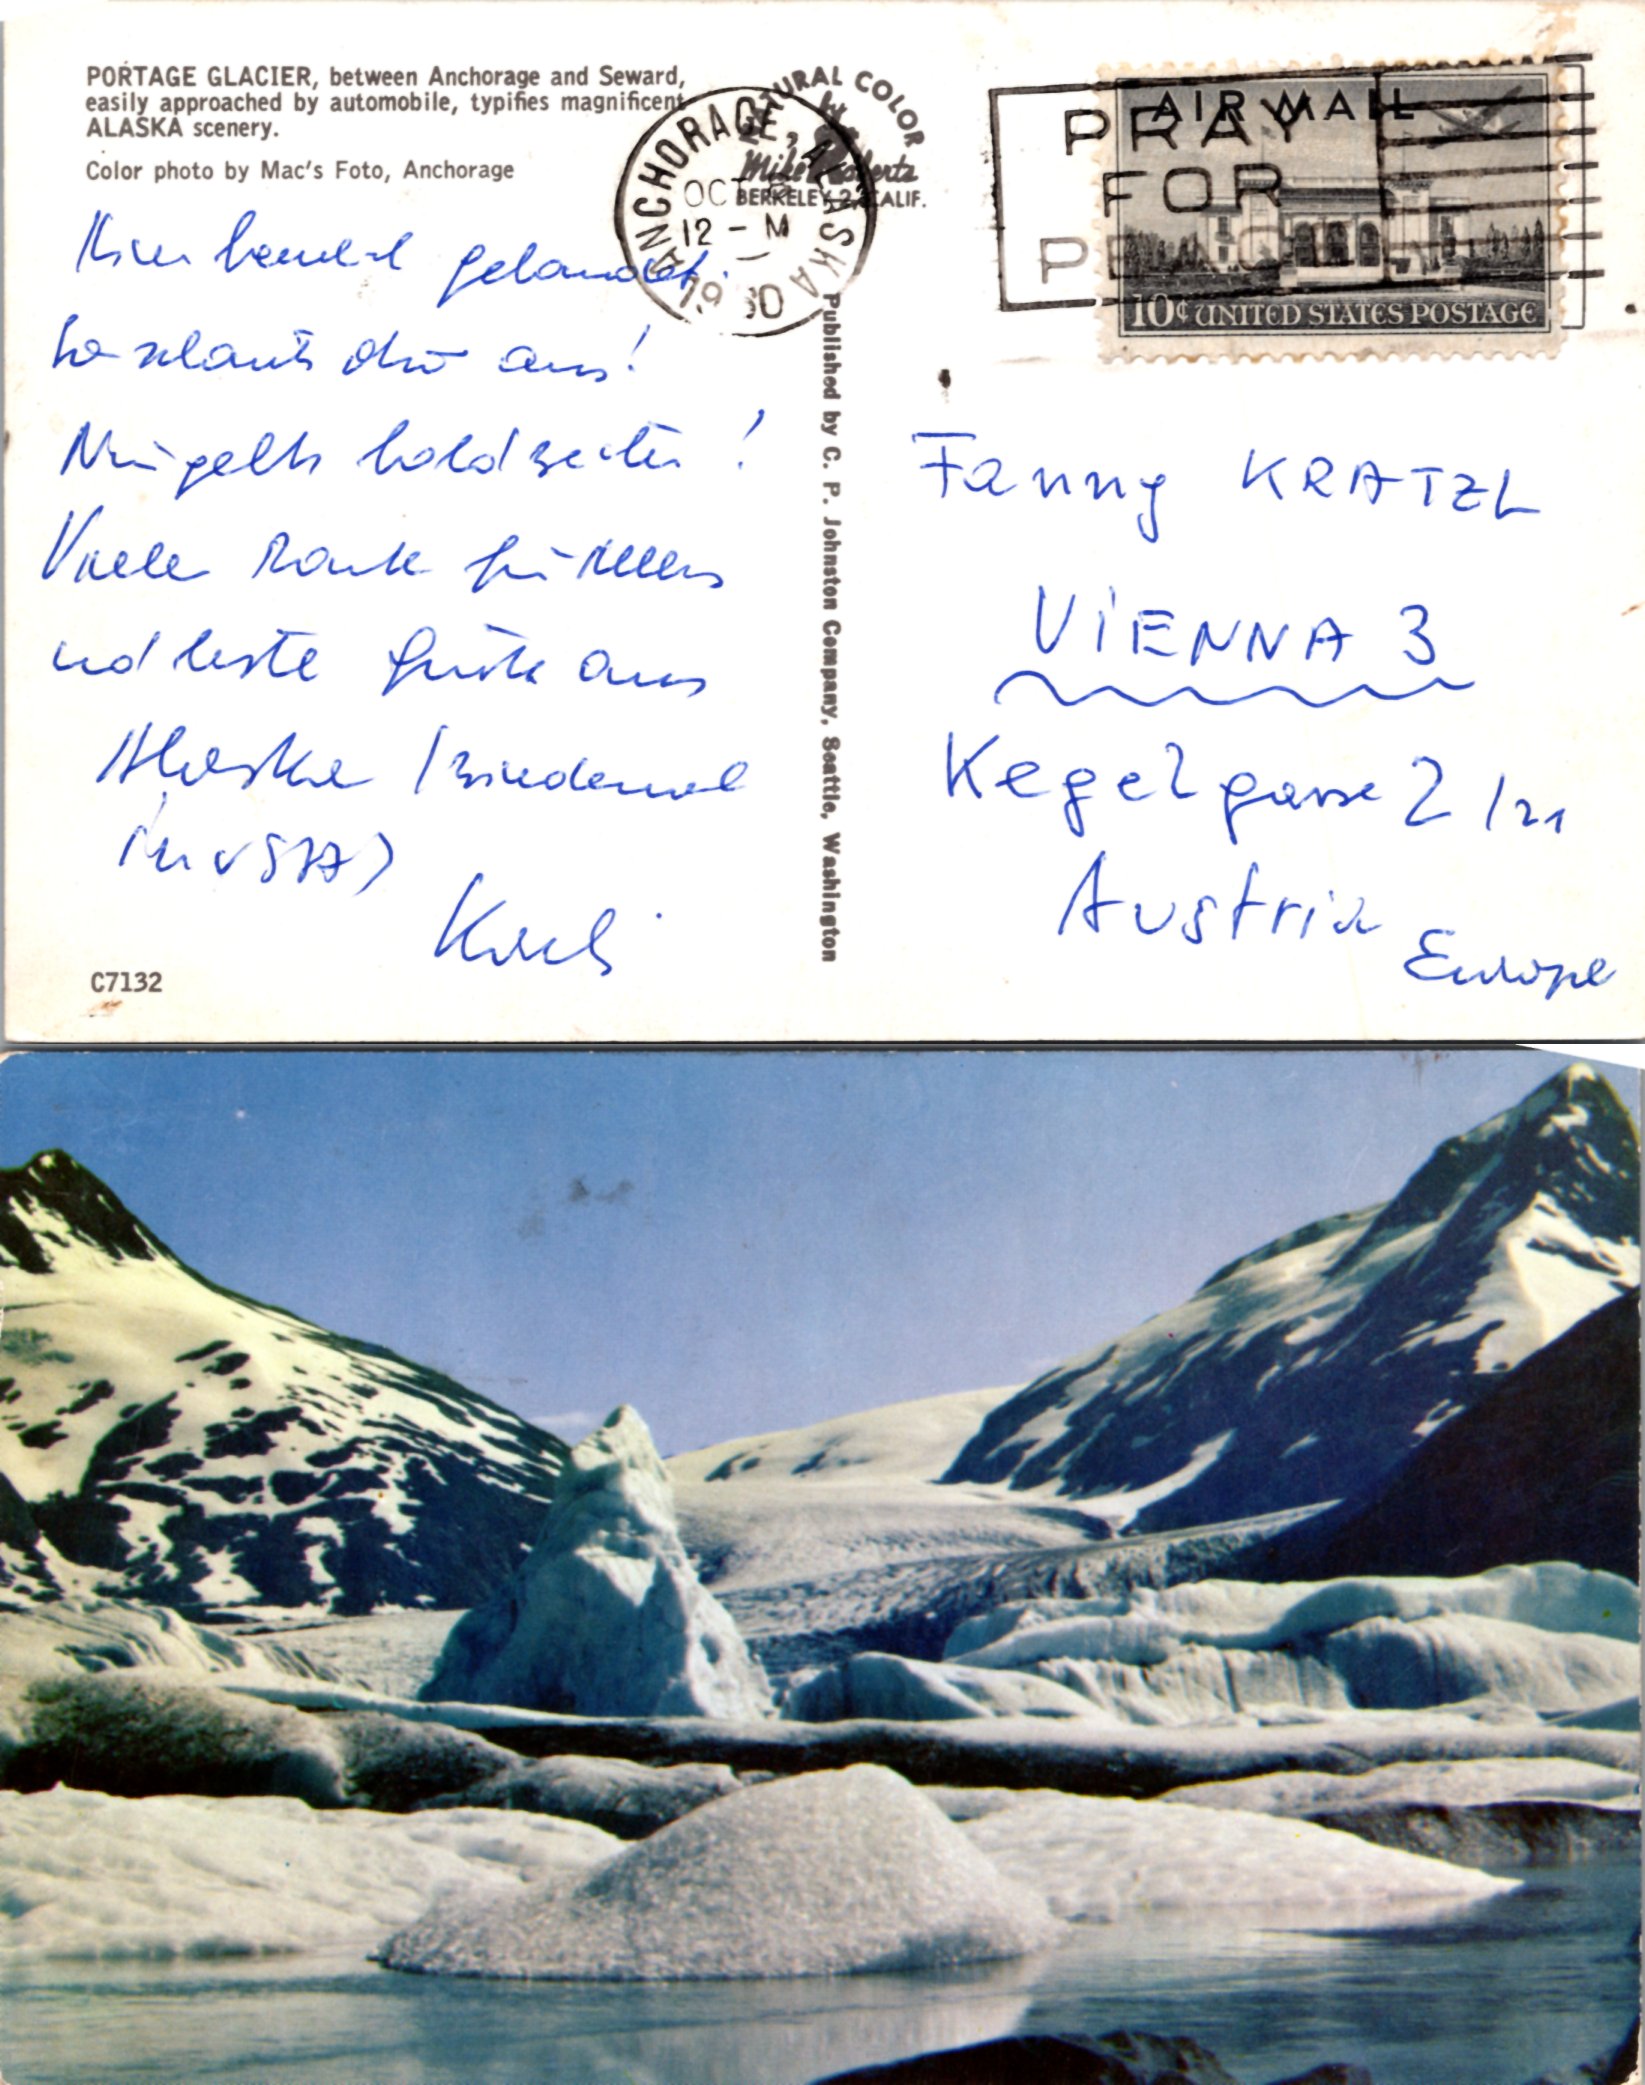 PORTAGE GLACIER, between Anchorage and Seward,
easily approached by automobile, typifies magnificent
ALASKA scenery.
Color photo by Mac's Foto, Anchorage
NATURAL COLOR
by
Mike Roberts
BERKELEY 2, CALIF.
ANCHORAGE, ALASKA
OCT
12 - M
19 60
PRAY
FOR
AIR MAIL
10¢ UNITED STATES POSTAGE
gelandet.
So schaut's dort aus!
geht's bald weiter!
Vielen Dank für Alles
und beste Grüße aus
Alaska (wiedermal
in USA)
Published by C. P. Johnston Company, Seattle, Washington
Fanny KRATZL
VIENNA 3
Kegelgasse 2/21
Austria
Europe
C7132